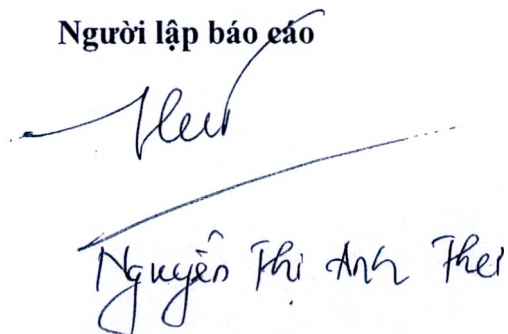 Người lập báo cáo
Nguyễn Thị Anh